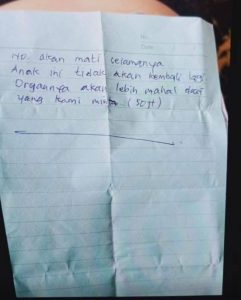 No.
Date
No. akan mati selamanya
Anak ini tidak akan kembali lagi
Organnya akan lebih mahal dari
yang kami minta (50jt)